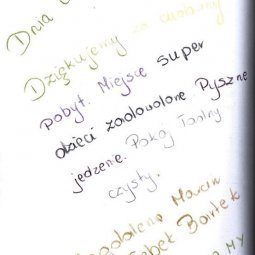 Dnia
Dziękujemy za cudowny
pobyt. Miejsce super
dzieci zadowolone Pyszne
jedzenie. Pokój ładny
czysty.
Magdalena Marcin
Bartek
MY